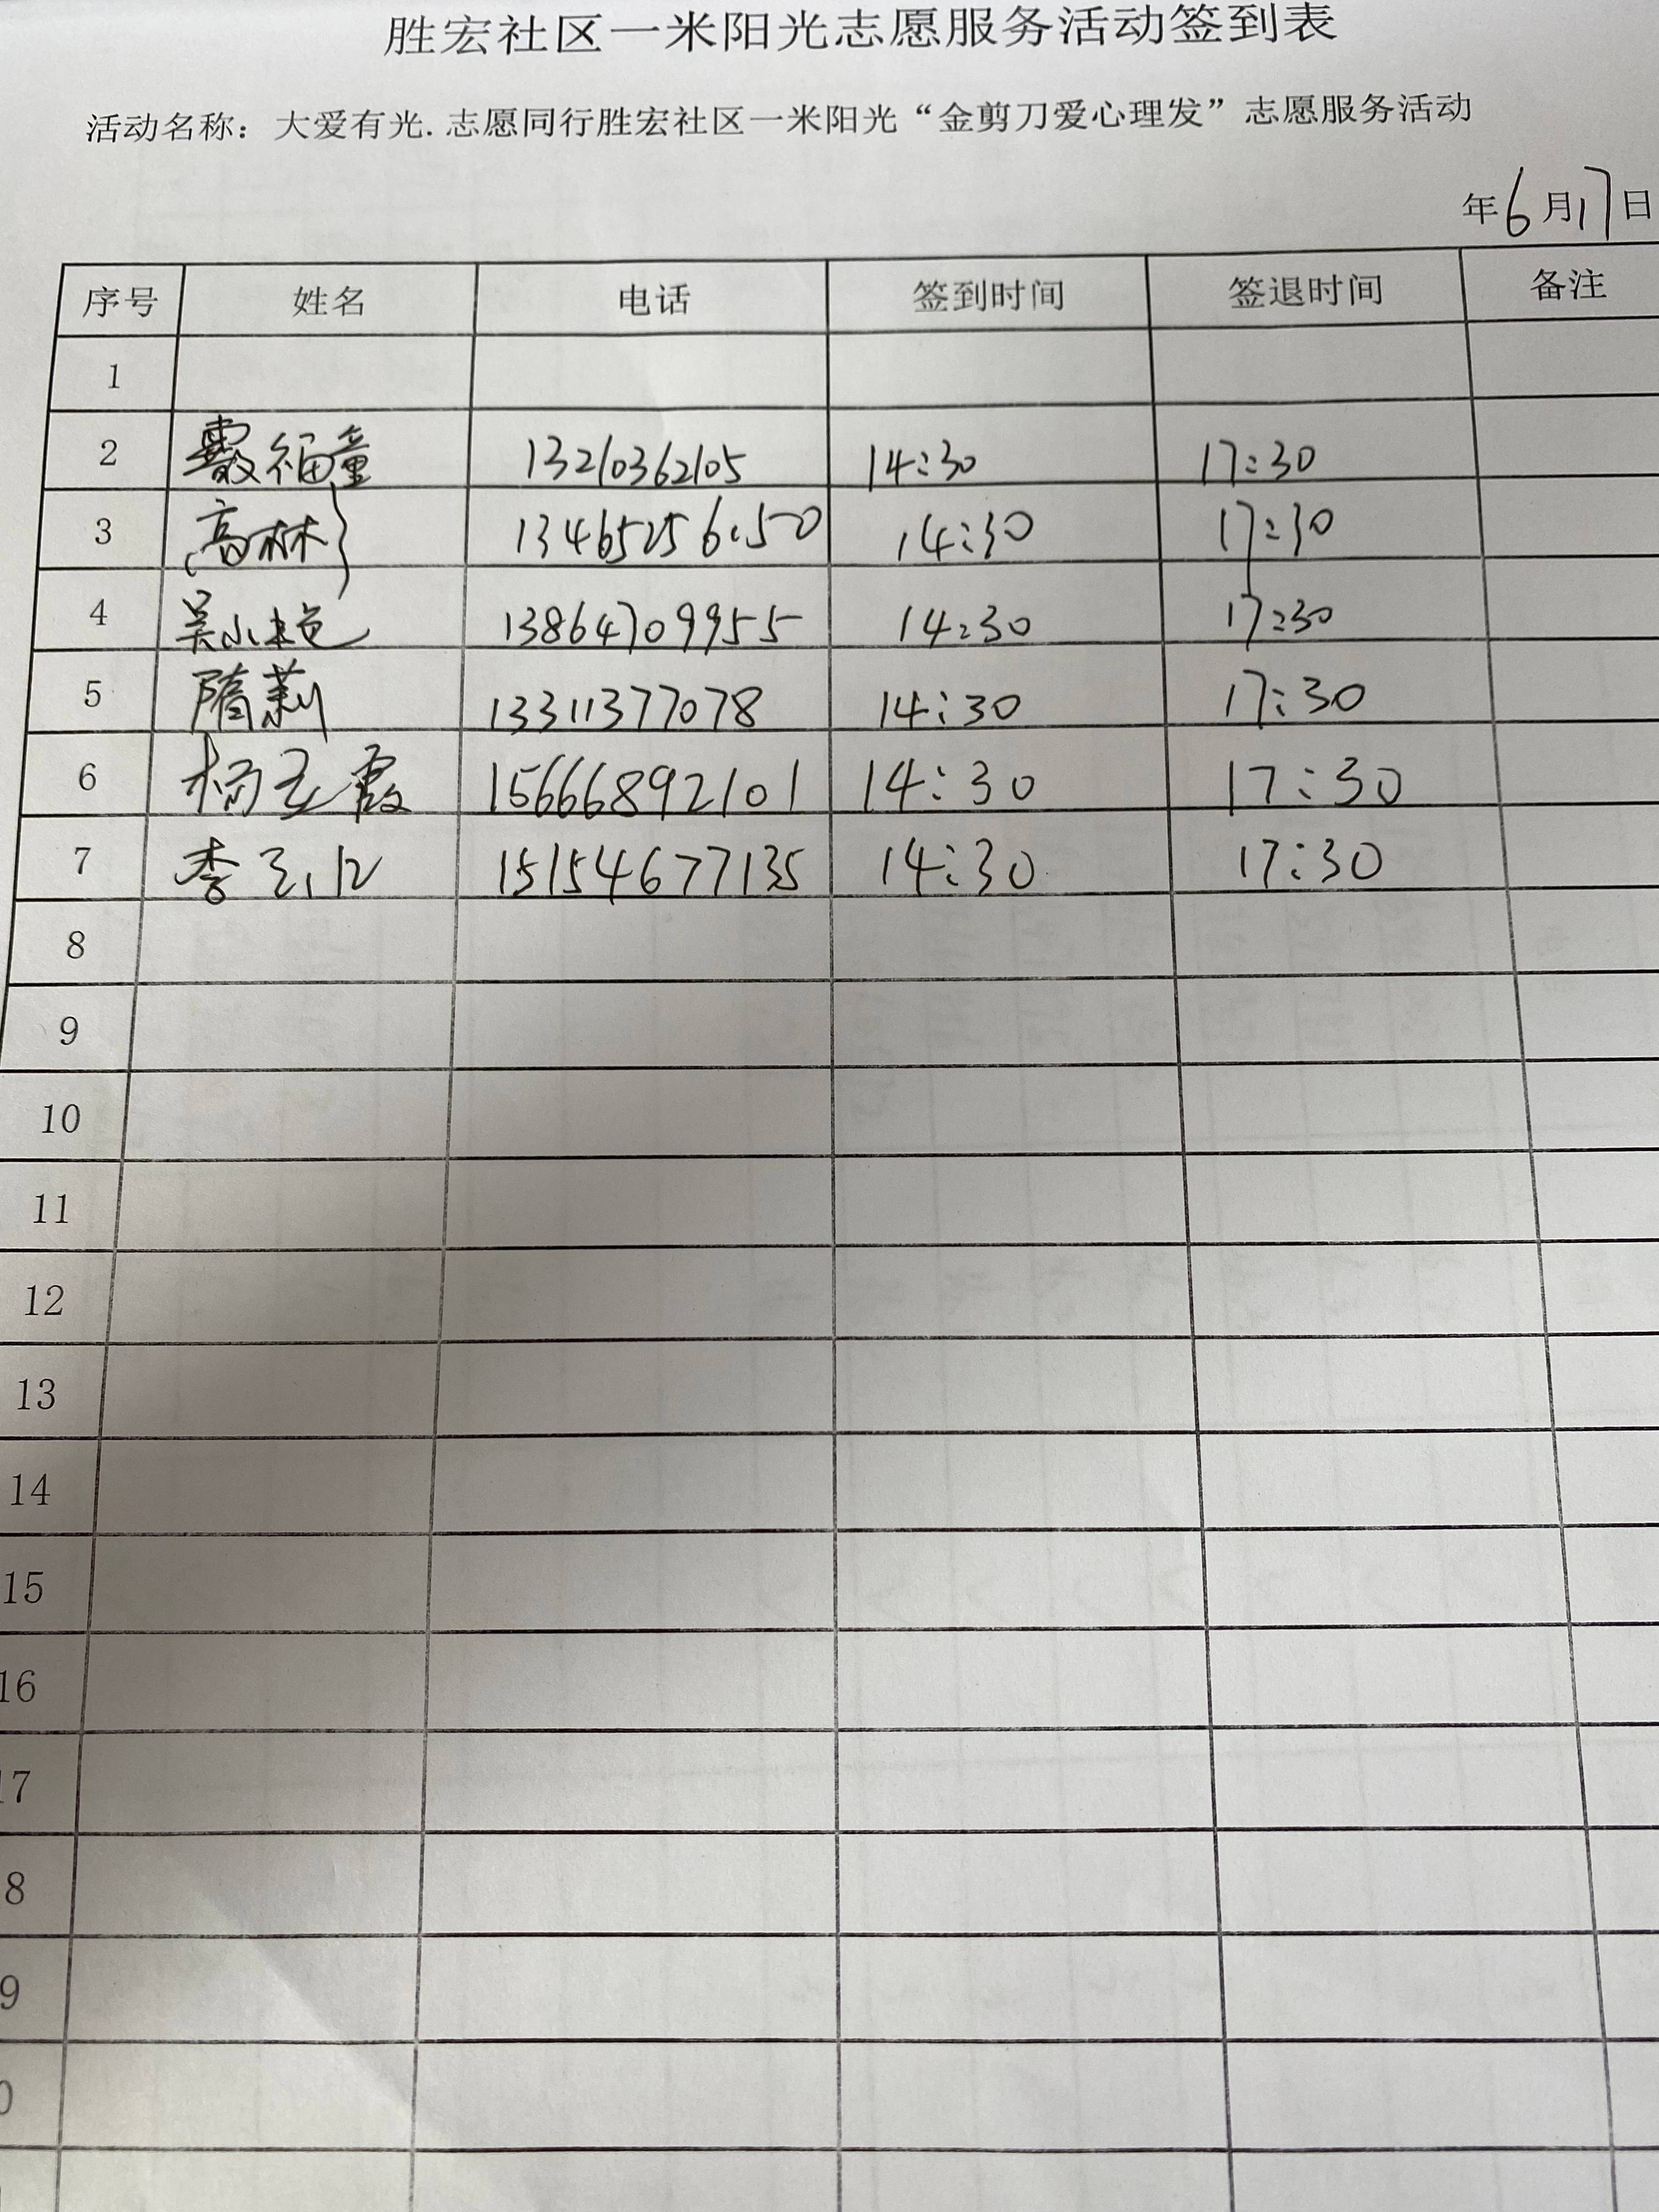 胜宏社区一米阳光志愿服务活动签到表
活动名称：大爱有光.志愿同行胜宏社区一米阳光“金剪刀爱心理发”志愿服务活动
年6月17日
序号 姓名 电话 签到时间 签退时间 备注
1
2 福童 13210362105 14:30 17:30
3 高林 14:30 17:30
4 吴小艳 13864709955 14:30 17:30
5 隋莉 13311377078 14:30 17:30
6 杨玉霞 15666892101 14:30 17:30
7 李 15154677135 14:30 17:30
8
9
10
11
12
13
14
15
16
17
8
9
0